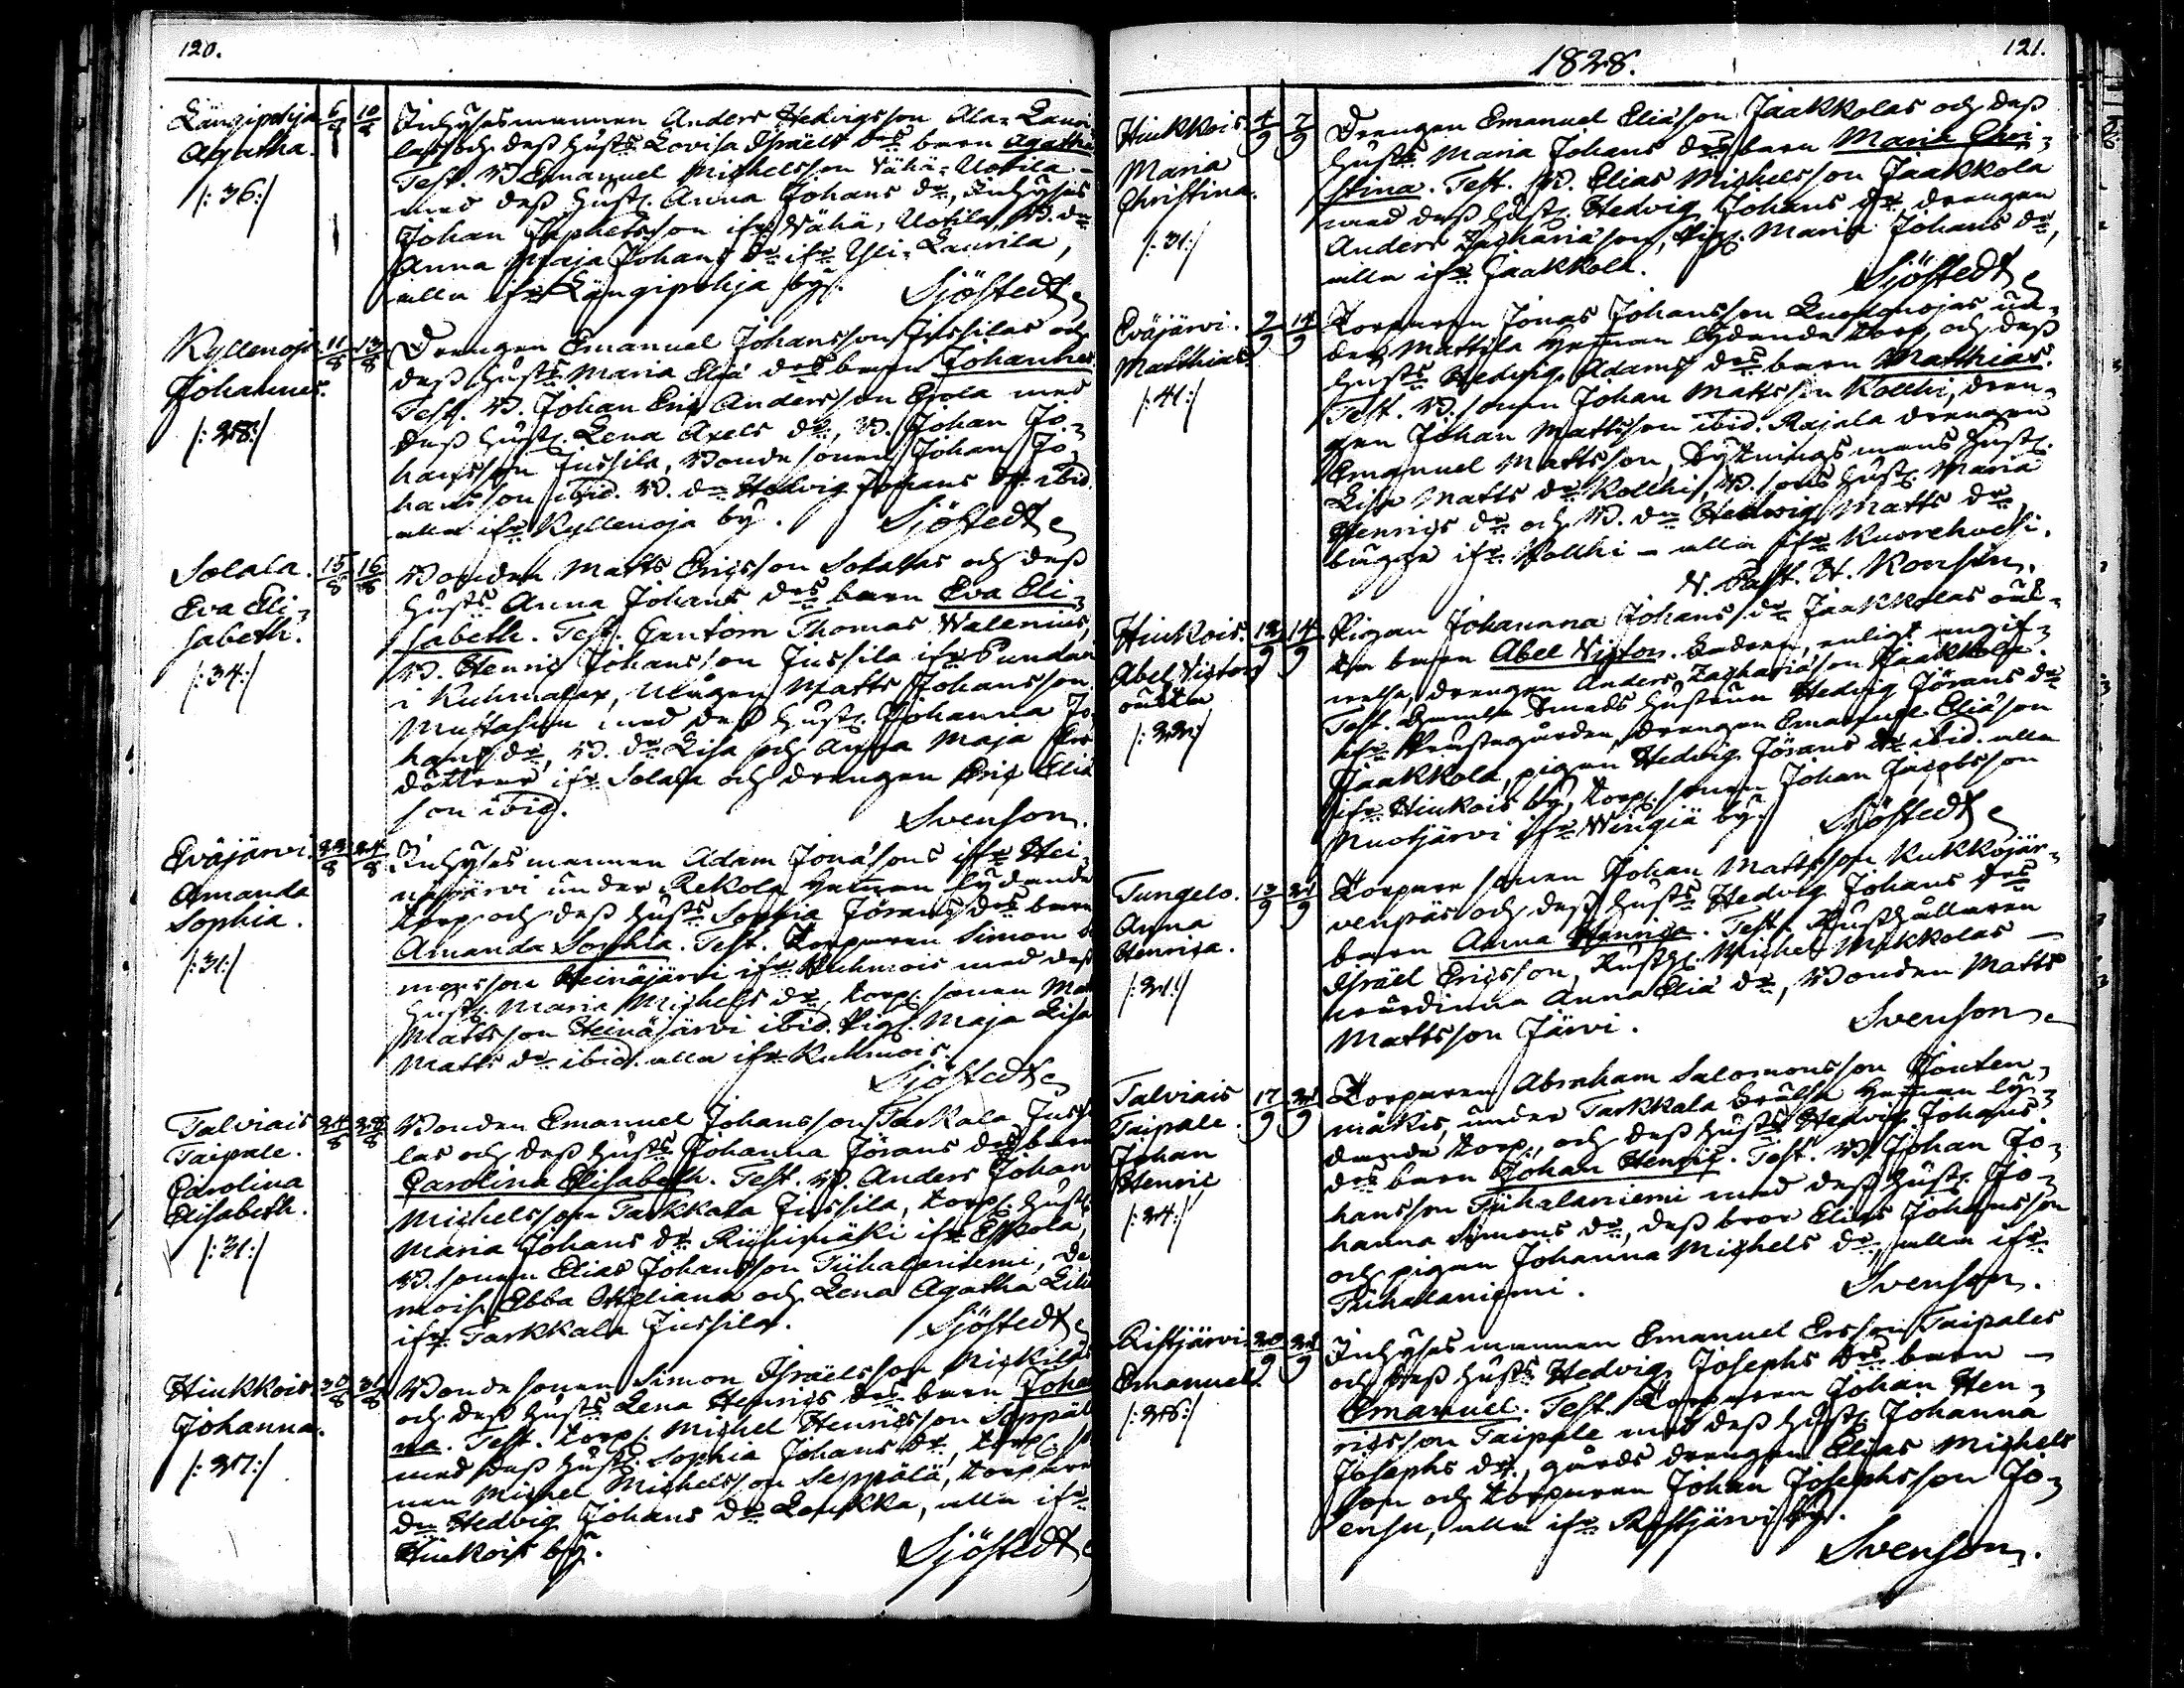 120.
Längipohja 6/8 10/8
Agatha.
/: 36:/
Inhysesmannen Anders Hedvigsson Ala-Laurilas
och dess hust: Lovisa Israels d:rs barn Agatha
Test. B. Emanuel Michelsson Vähä-Uotila
med dess hust. Anna Johans d:r, Inhyses
Johan Japhetsson ifr. Vähä-Uotila, B. d:r
Anna Maja Johans d:r ifr. Yli-Laurila,
alla ifr Längipohja by. Sjöstedt
Kyllenoja 11/8 13/8
Johannes.
/: 28:/
Drengen Emanuel Johansson Jussilas och
dess hust: Maria Eliæ d:rs barn Johannes
Test. B. Johan Eric Andersson Erola med
dess hust. Lena Axels d:r, B. Johan Jo-
hansson Jussila, Bonde sonen Johan Jo-
hansson ibid. B. d:r Hedvig Johans d:r ibid.
alla ifr Kyllenoja by. Sjöstedt
Solala. 15/8 16/8
Eva Eli-
sabeth.
/: 34:/
Bonden Matts Ericsson Solalas och dess
hust: Anna Johans d:rs barn Eva Eli-
sabeth. Test. Cantorn Thomas Walenius,
B. Henric Johansson Jussila ifr
i Kuhmalax, Matts Johansson
Mustasen med dess hust. Johanna Jo-
hans d:r, B. d:r Lisa och Anna Maja
döttrar ifr Solala och drengen Eric Eliæ
son ibid. Svenson.
Eväjärvi 23/8 24/8
Amanda
Sophia.
/: 31:/
Inhysesmannen Adam Jonæsons ifr Hei-
näjärvi under Rekola Hemman lydande
torp och dess hust: Sophia Jörans d:rs barn
Amanda Sophia. Test. Torparen Simon
monsson Heinäjärvi ifr Kuhmois med dess
hust. Maria Michels d:r, torp. sonen
Mattsson Heinäjärvi ibid. Pig. Maja Lisa
Matts d:r ibid. alla ifr Kuhmois.
Sjöstedt
Talviais 24/8 28/8
Taipale.
Carolina
Elisabeth.
/: 31:/
Bonden Emanuel Johansson Tarkkala Jussi
las och dess hust: Johanna Jörans d:rs barn
Carolina Elisabeth. Test. B. Anders Johan
Michelsson Tarkkala Jussila, torp. hust.
Maria Johans d:r Riihimäki ifr Eskola,
B. sonen Elias Johansson Tiihalaniemi, De
mois. Ebba Heliana och Lena Agatha
ifr Tarkkala Jussila. Sjöstedt
Hinkkois. 30/8 31/8
Johanna.
/: 27:/
Bonde sonen Simon Israelsson Nickilas
och dess hust: Lena Henrics d:rs barn Johan
na. Test. torp. Michel Henricsson Seppälä
med dess hust. Sophia Johans d:r, torp.
nen Michel Michelsson Seppälä, torpare
d:r Hedvig Johans d:r Leukka, alla ifr
Hinkois by. Sjöstedt
1828.
121.
Hinkkois. 4/9 7/9
Maria
Christina.
/: 31:/
Drengen Emanuel Eliæson Jaakkolas och dess
hust: Maria Johans d:rs barn Maria Chri-
stina. Test. B. Elias Michelsson Jaakkola
med dess hust. Hedvig Johans d:r, drengen
Anders Zachariæson, Pig. Maria Johans d:r,
alla ifr Jaakkola. Sjöstedt
Eväjärvi. 9/9 14/9
Matthias.
/: 41:/
Torparen Jonas Johansson un-
der Mattila Hemman lydande torp, och dess
hust: Hedvig Adams d:rs barn Matthias.
Test. B. sonen Johan Mattsson Kollhi, dren-
gen Johan Mattsson ibid. Rajala drengen
Emanuel Mattsson, Bytningsmans hust.
Lisa Matts d:r Kollhi, B. sons hust. Maria
Henrics d:r och B. d:r Hedwig Matts d:r
begge ifr Kollhi - alla ifr Kuorehvesi.
N. Past. H. Konsin.
Hinkois. 12/9 14/9
Abel Victor
ouäkta
/: 22:/
Pigan Johanna Johans d:r Jaakkolas ouäk-
ta barn Abel Victor. Fadren, enligt angif-
velse, drengen Anders Zachariæson Jaakkola.
Test. Gamla Smeds hustrun Hedvig Jörans d:r
ifr Prestegården, drengen Emanuel Eliæson
Jaakkola, pigan Hedvig Jörans d:r ibid. alla
ifr Hinkois by, torp. sonen Johan Jacobsson
Nuotjärvi ifr Wingiä by. Sjöstedt
Tungelo. 13/9 21/9
Anna
Henrica.
/: 21:/
Torpare sonen Johan Mattsson Kukkojär-
venpäs och dess hust: Hedvig Johans d:rs
barn Anna Henrica. Test. Rusthållaren
Israël Ericsson, Rusth. Michel Mikkolas
värdinna Anna Eliæ d:r, Bonden Matts
Mattsson Järvi. Svenson.
Talviais 17/9 21/9
Taipale.
Johan
Henric
/: 24:/
Torparen Abraham Salomonsson Jouten-
mäkis, under Tarkkala frälse Hemman ly-
dande torp, och dess hust: Hedvig Johans
d:rs barn Johan Henric. Test. B. Johan Jo-
hansson Tiihalaniemi med dess hust. Jo-
hanna Simons d:r, dess bror Elias Johansson
och pigan Johanna Michels d:r, alla ifr
Tiihalaniemi. Svenson.
Ristjärvi. 20/9 21/9
Emanuel.
/: 26:/
Inhysesmannen Emanuel Ersson Taipales
och dess hust: Hedvig Josephs d:rs barn
Emanuel. Test. Torparen Johan Hen-
ricsson Taipale med dess hust. Johanna
Josephs d:r, gårds drengen Elias Michels
son och torparen Johan Josephsson Jo-
ensu, alla ifr Ristjärvi by.
Svenson.